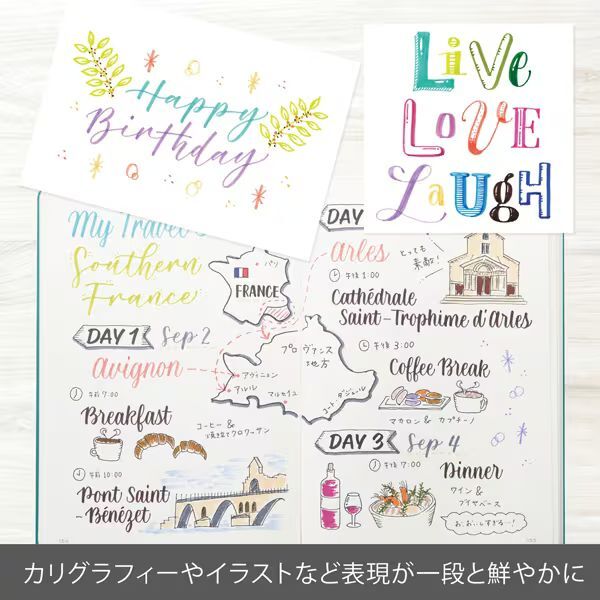 Happy
Birthday
LiVe
LOVE
LaUgH
My Travel
Southern
France
DAY 1 Sep 2
Avignon
午前 7:00
Breakfast
コーヒー &
焼きたてクロワッサン
午前 10:00
Pont Saint
-Bénézet
パリ
FRANCE
プロヴァンス
地方
アヴィニョン
アルル
マルセイユ
コートダジュール
DAY
Arles
とっても
素敵!
午後 1:00
Cathédrale
Saint-Trophime d'Arles
午後 3:00
Coffee Break
マカロン & カプチーノ
DAY 3 Sep 4
午後 7:00
Dinner
ワイン &
ブイヤベース
お、おいしすぎる…!
カリグラフィーやイラストなど表現が一段と鮮やかに